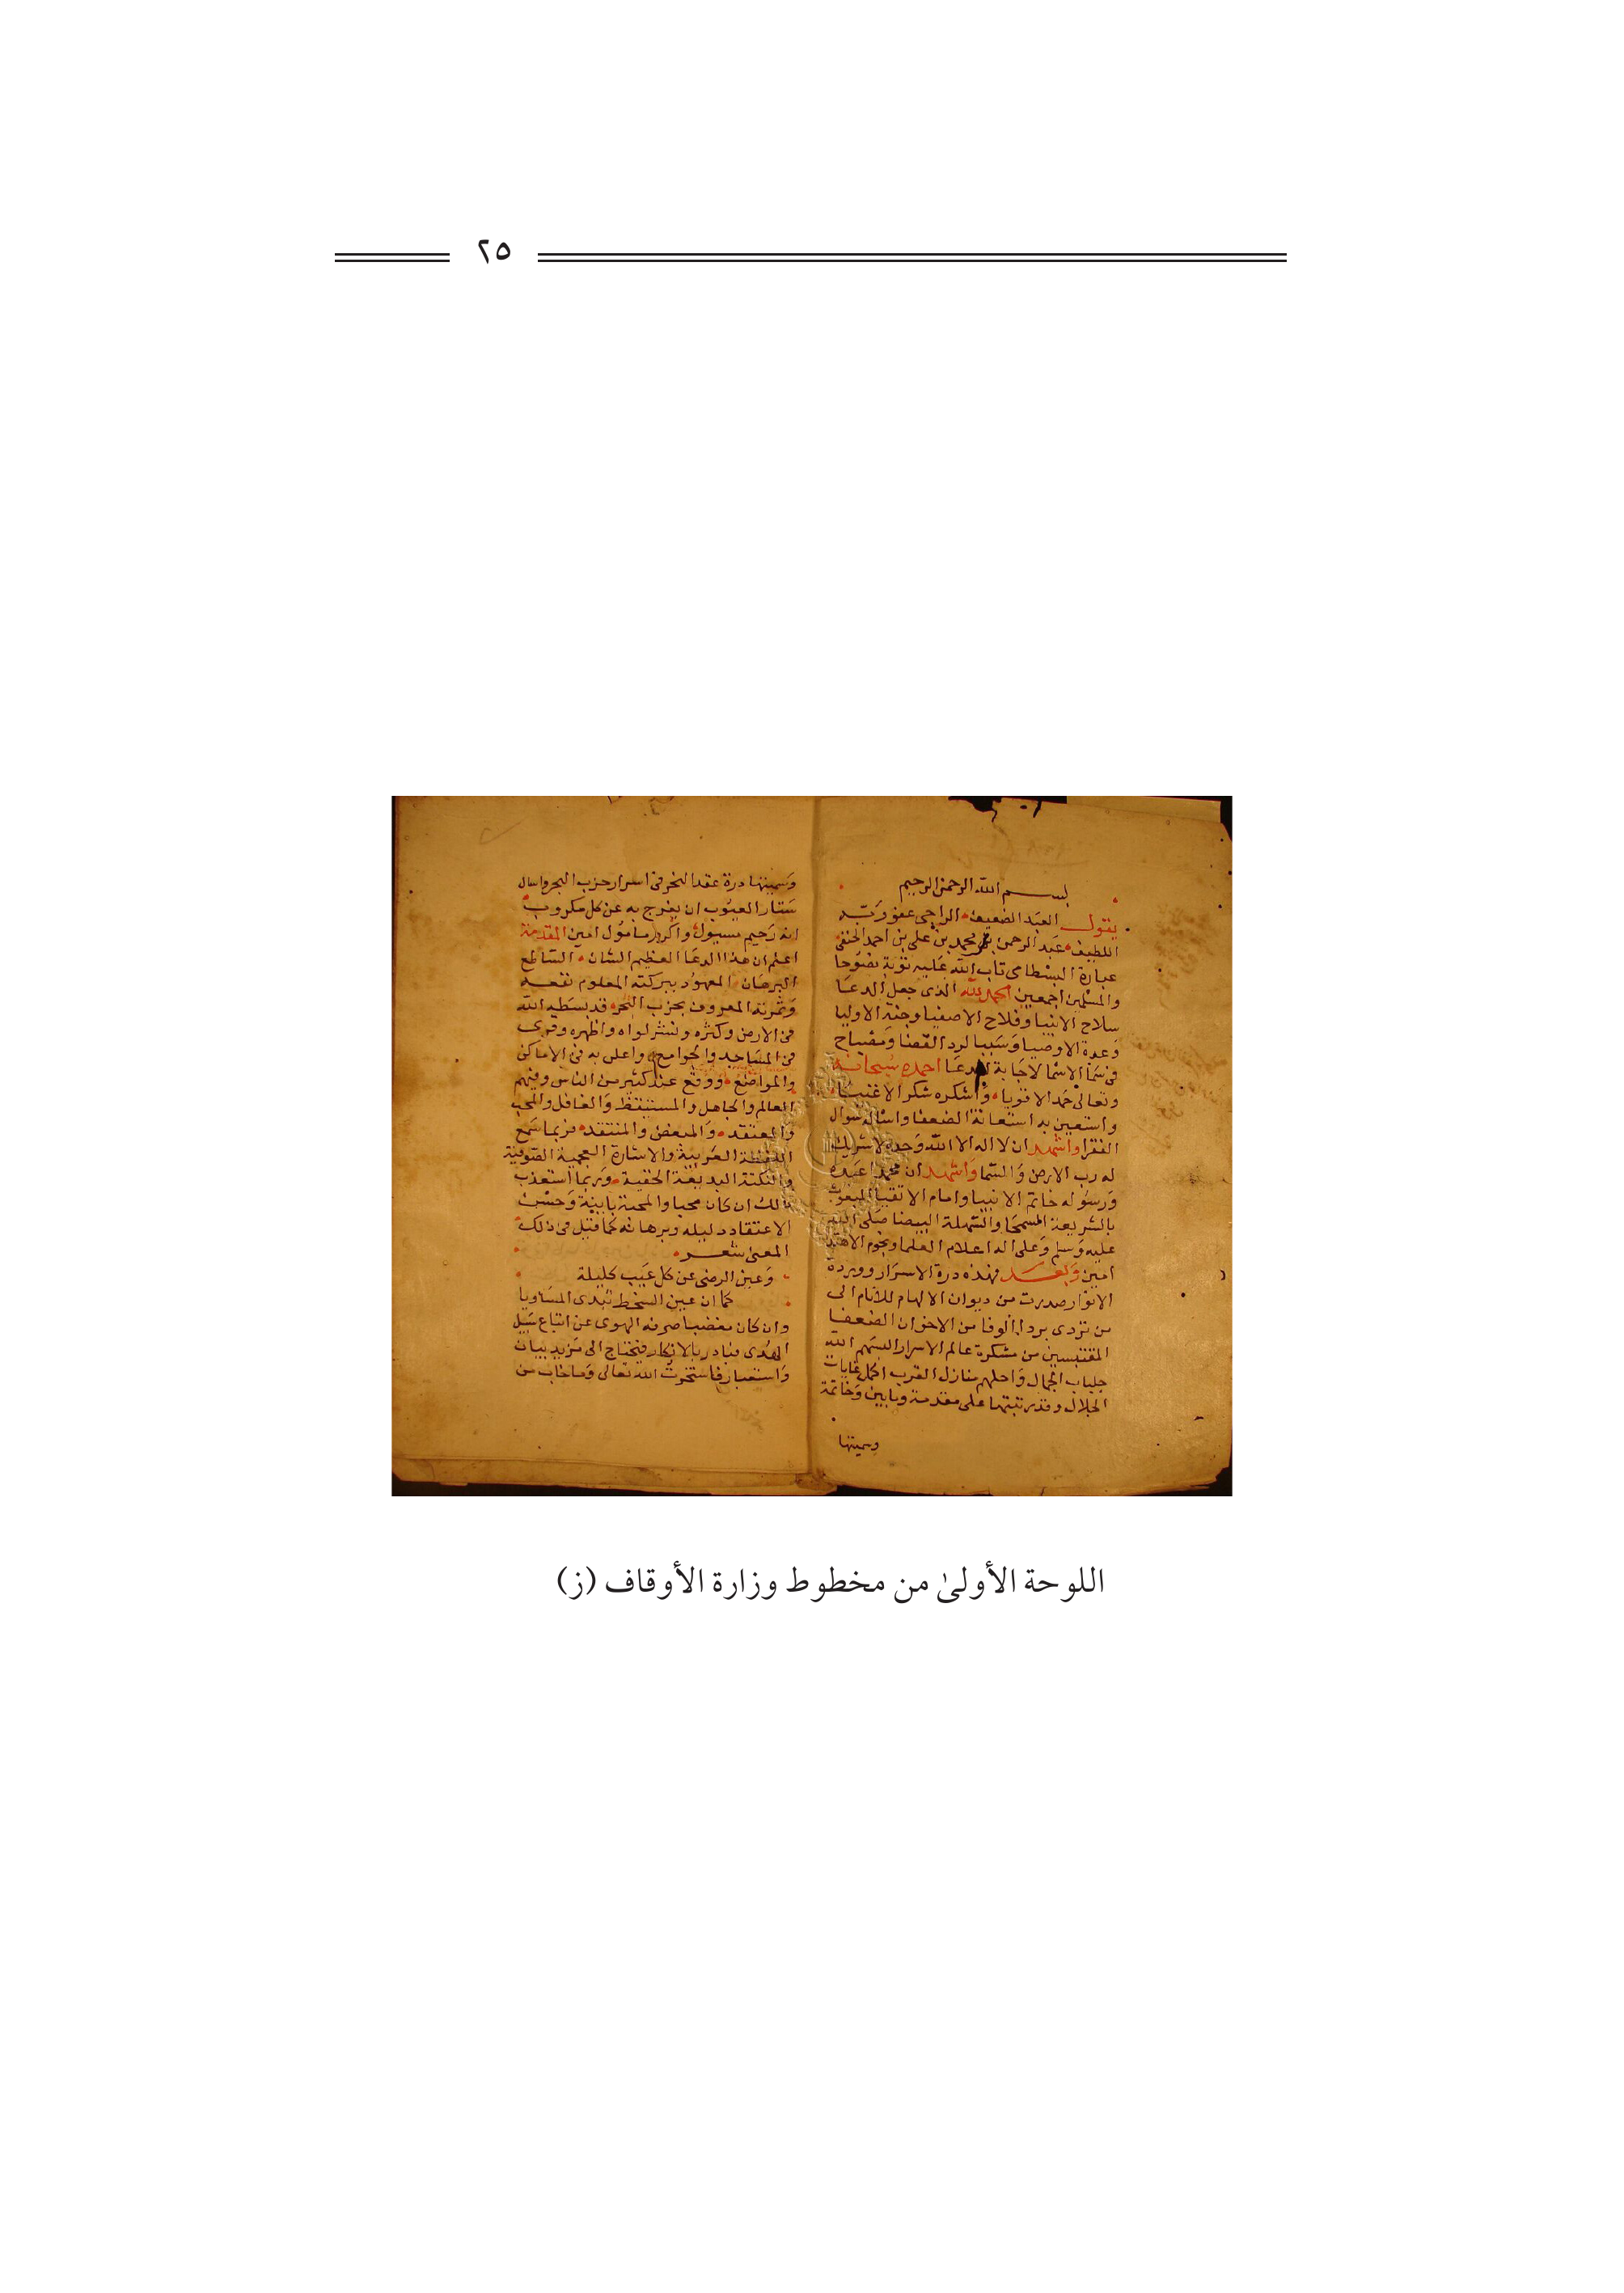 ٢٥
بسم الله الرحمن الرحيم
يقول العبد الضعيف الراجى عفو ربه
اللطيف عبد الرحمن بن محمد بن على بن احمد الحنفى
البسطامى تاب الله عليه توبة نصوحا
والمسلمين اجمعين الحمد لله الذى جعل الدعا
سلاح الانبيا وفلاح الاصفيا وجنة الاوليا
وعدة الاوصيا وسببا لرد القضا ومصباح
فى سما الاسما لاجابة الدعا احمده سبحانه
وتعالى حمد الاقويا واشكره شكر الاغنيا
واستعين به استعانة الضعفا واساله سوال
الفقرا واشهد ان لا اله الا الله وحده لا شريك
له رب الارض والسما واشهد ان محمدا عبده
ورسوله خاتم الانبيا وامام الاتقيا المبعوث
بالشريعة السمحا والبيضا صلى الله
عليه وسلم وعلى اله اعلام العلما ونجوم الاهتدا
امين وبعد فهذه درة الاسرار ووردة
الانوار صدرت من ديوان الالهام للانام الى
من تردى بردا الوفا من الاخوان الضعفا
المقتبسين من مشكوة عالم الاسرار البسهم الله
جلباب الجمال واحلهم منازل القرب اكمل غايات
الجلال وقد رتبتها على مقدمة وبابين وخاتمة
وسميتها
وسميتها درة عقد النحر فى اسرار حزب البحر واسال
ستار العيوب ان يفرج به عن كل مكروب
انه رحيم مسيول واكرم مامول امين المقدمة
اعلم ان هذا الدعا العظيم الشان الساطع
البرهان المعهود ببركته المعلوم نفعه
وثمرته المعروف بحزب البحر قد بسطه الله
فى الارض وكثره ونشر لواه واظهره وقرى
فى المساجد والجوامع واعلن به فى الاماكن
والمواضع ووقع عند كثير من الناس وفيهم
العالم والجاهل والمستيقظ والغافل والمحب
والمعتقد والمبغض والمنتقد فربما سمع
اللفظة العربية والاشارة العجمية الصوفية
والنكتة البديعة الخفية وربما استعذب
ذلك ان كان محبا والمحبة بابينة وحسن
الاعتقاد دليله وبرهانه كما قيل فى ذلك
المعنى شعر
وعين الرضى عن كل عيب كليلة
كما ان عين السخط تبدى المساويا
وان كان مغضبا صرفه الهوى عن اتباع سبيل
الهدى فبادر بالانكار فيحتاج الى مزيد بيان
واستعبار فاستخرت الله تعالى وما خاب من
اللوحة الأولىٰ من مخطوط وزارة الأوقاف (ز)